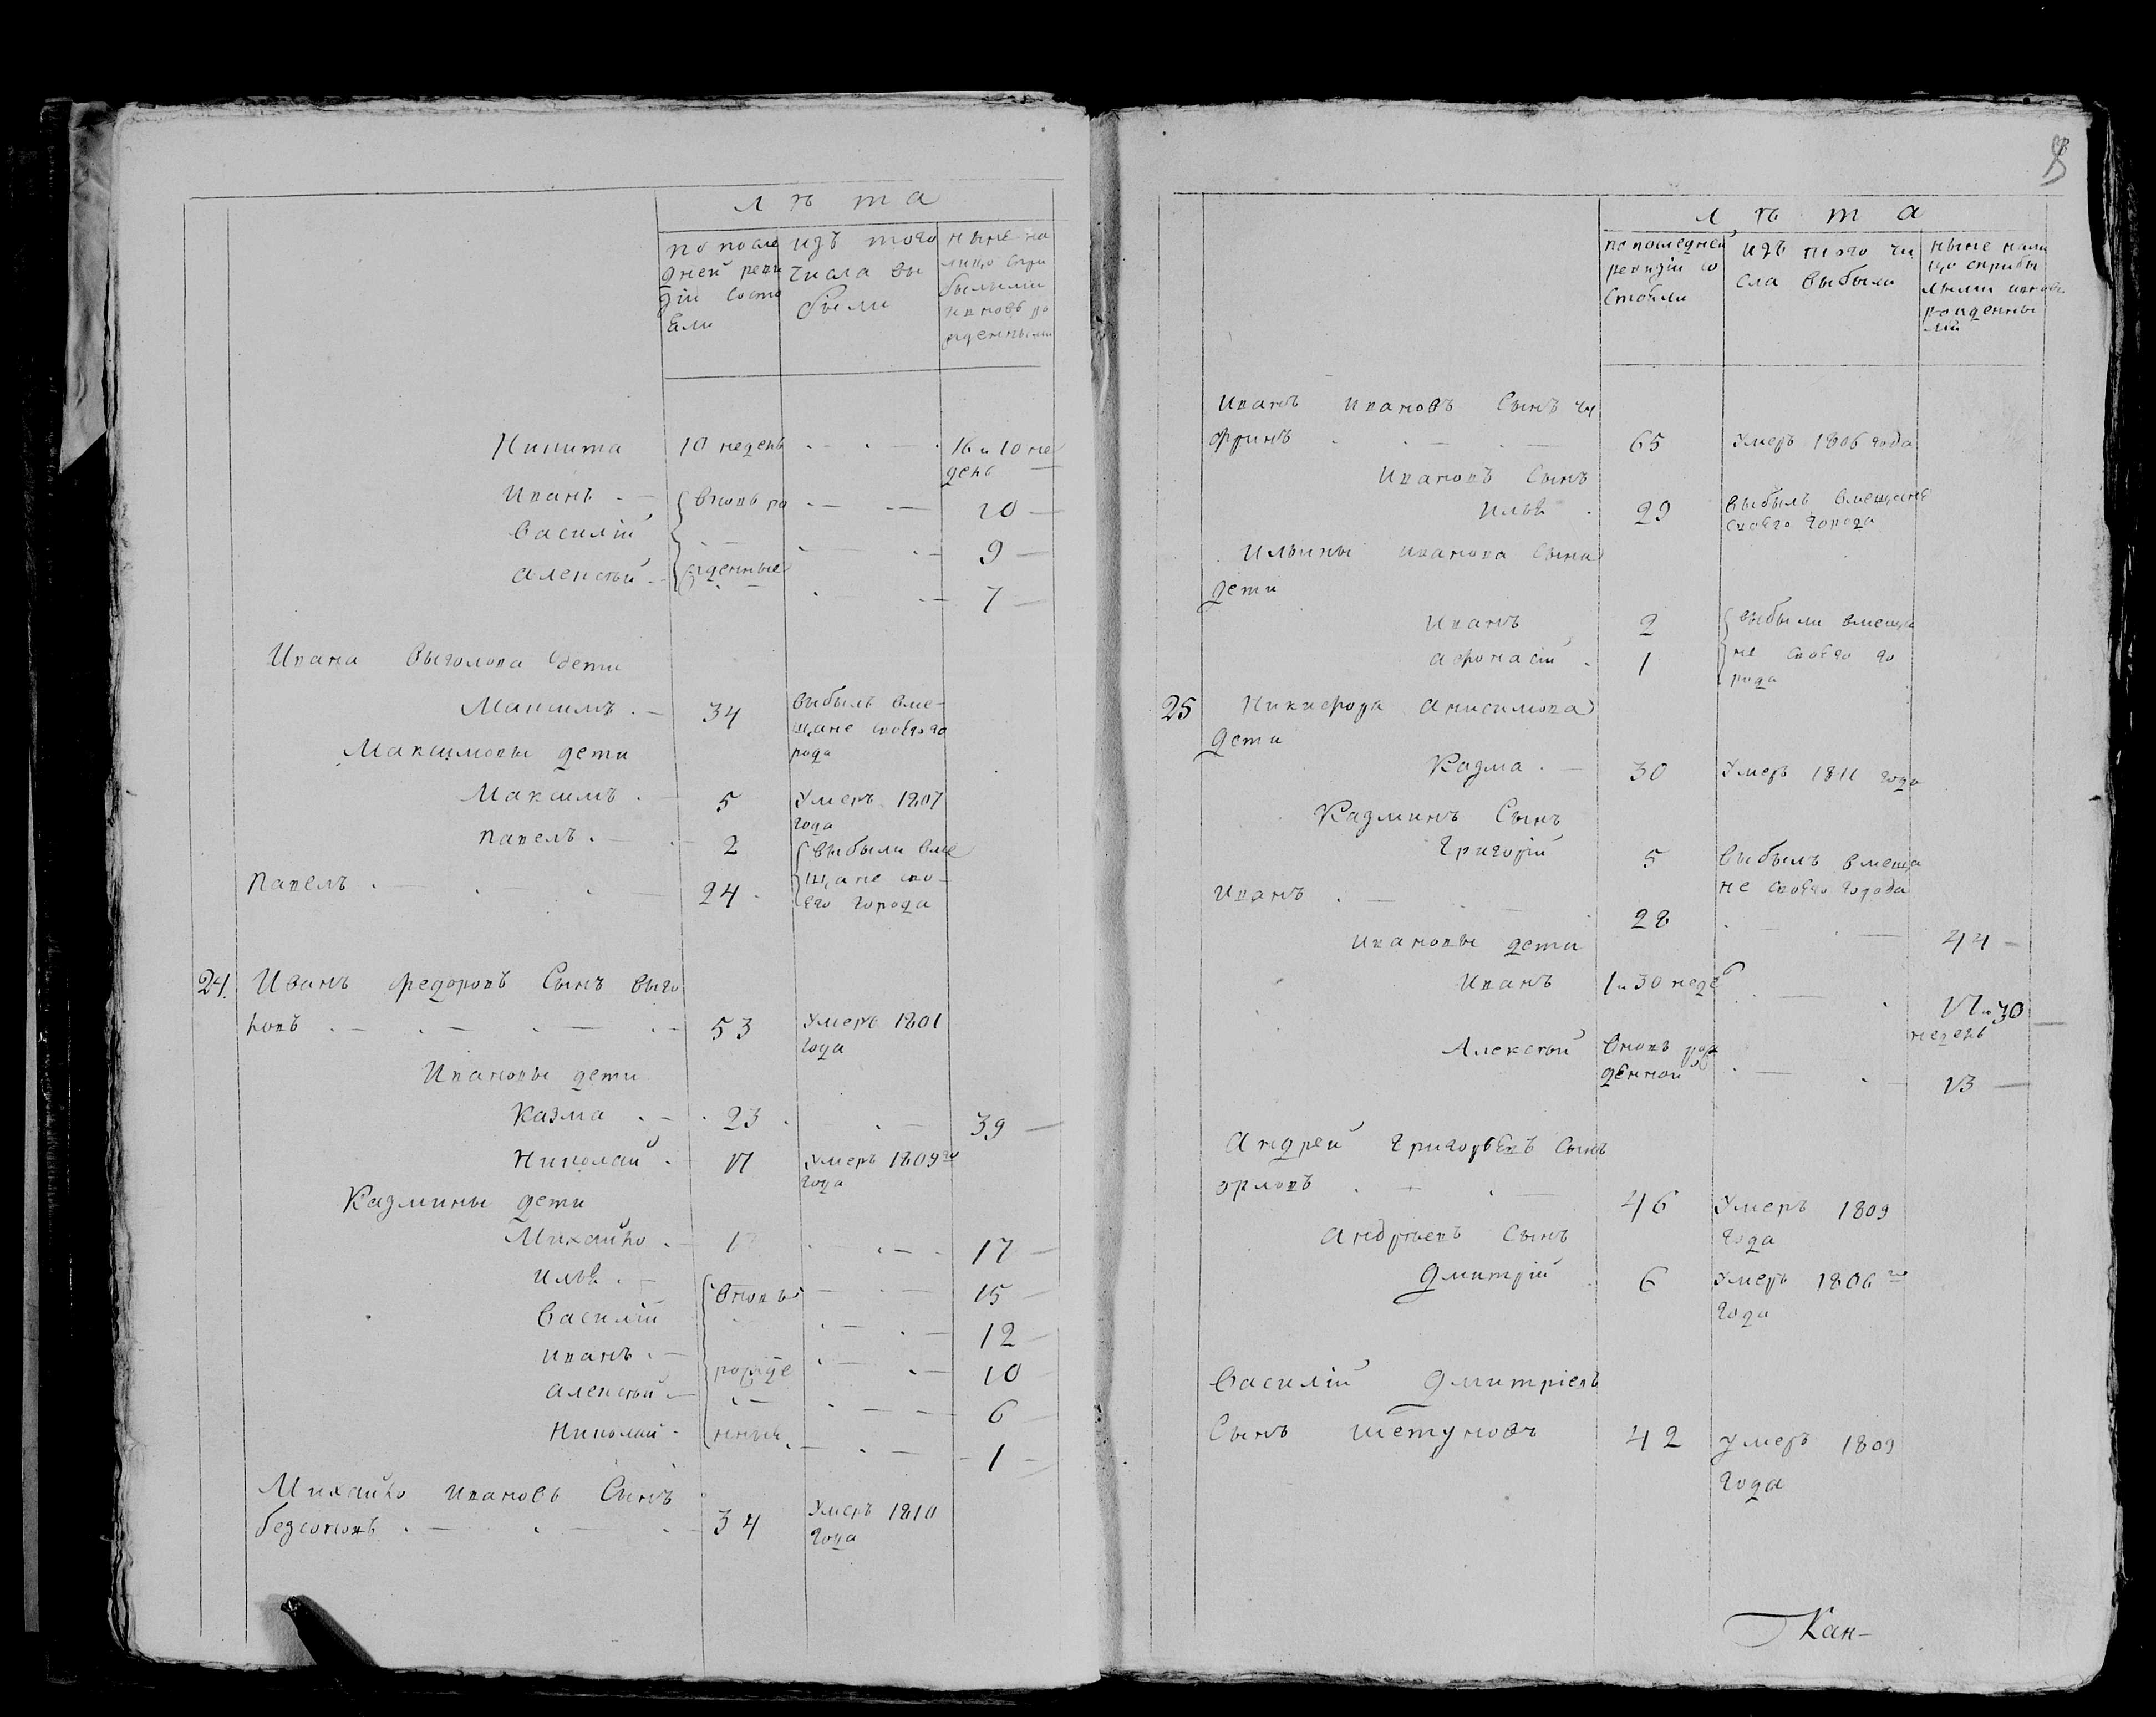 лѣта
по после
дней реви
зіи состо
ѣли
изъ того
числа вы
были
ныне на
лицо спри
былыми
иновь ро
жденными
Никита 10 недель 16 и 10 не
дель
Иванъ 10
Василій 9
Алексѣй 7
{вновь ро
жденные
Ивана Выголова дети
Максимъ 34 выбылъ вме-
щане своего го
рода
Максимовы дети
Максимъ 5 Умеръ 1807
года
Павелъ 2 {выбыли вме
Павелъ 24 щане сво-
его города
24. Иванъ федоровъ Сынъ выго
ловъ 53 Умеръ 1801
года
Ивановы дети
Казма 23 39
Николай 17 Умеръ 1809го
года
Казмины дети
Михайло 1 17
Илья {вновь 15
Василій 12
Иванъ рожде 10
Алексѣй 6
Николай нныя 1
Михайло Ивановъ Сынъ
безсоновъ 34 Умеръ 1810
года
8
лѣта
по последней
ревизіи со
стояли
изъ того чи
сла выбыли
ныне нали
цо сприбы
лыми иновь
рожденны
ми
Иванъ Ивановъ Сынъ чу
фринъ 65 Умеръ 1806 года
Ивановъ Сынъ
Илья 29 выбылъ вмещане
своего города
Ильины Иванова Сына
дети
Иванъ 2 {выбыли вмеща
Афонасій 1 не своего го
рода
25 Никифора Анисимова
дети
Казма 30 Умеръ 1811 года
Казминъ Сынъ
Григорій 5 выбылъ вмеща
не своего города
Иванъ 28 44
Ивановы дети
Иванъ 1 и 30 неде 17 и 30
недель
Алексѣй вновь рож
денной 13
Андрей Григорьевъ Сынъ
орловъ 46 Умеръ 1809
года
Андрѣевъ Сынъ
Дмитрій 6 Умеръ 1806го
года
Василій Дмитріевъ
Сынъ шетуновъ 42 умеръ 1809
года
Кан-